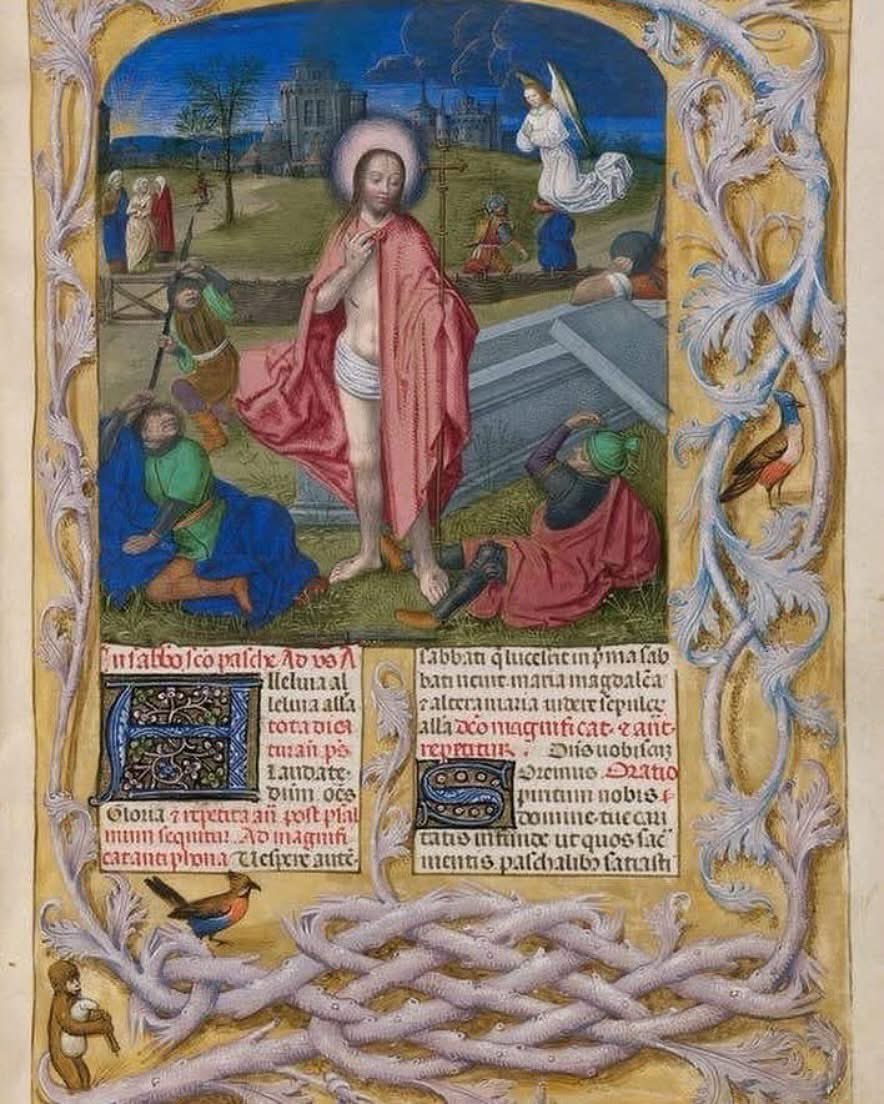 In sabbo sco pasche Ad vs A
lleluia al
leluia alla
tota dicit
tur añ ps
Laudate
dñm oēs
Gloria ⁊ repetita añ post psal
mum sequitur. Ad magnifi
cat antiphona Vespere autē
sabbati q̄ lucescit in p̄ma sab
bati uenit maria magdalēa
⁊ altera maria uidere sepulcr̄
alla Dc̄o magnificat ⁊ añt
repetitur. Dn̄s uobiscū
Oremus. Oratio
Spiritum nobis
domine tue cari
tatis infunde ut quos sac̄
mentis paschalibꝫ satiasti